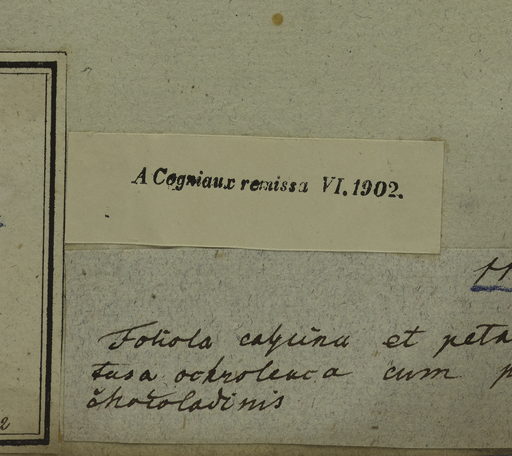 A Cogniaux remissa VI. 1902.
Foliola calycina et peta
tusa ochroleuca cum p
chocoladinis
2